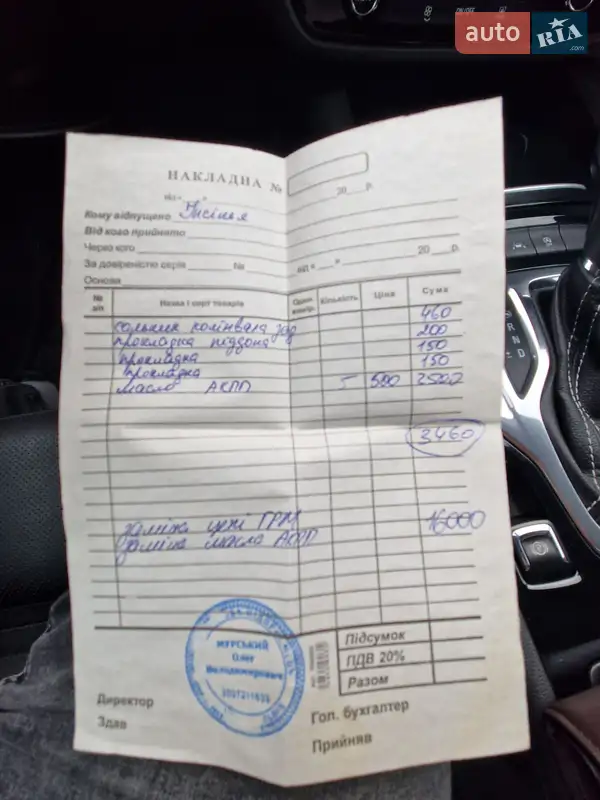 auto RIA
ON/OFF
НАКЛАДНА №
20 р.
Кому відпущено
Від кого прийнято
Через кого
За довіреністю серія № від « » 20 р.
Основа
№ з/п Назва і сорт товарів Один. виміру. Кількість Ціна Сума
сольник колінвала зад 460
прокладка піддона 200
прокладка 150
прокладка 150
масло АКПП 5 500 2500
3460
заміна цепі ГРМ 16000
заміна масла АКПП
МУРСЬКИЙ
Олег
Володимирович
Підсумок
ПДВ 20%
Разом
Директор
Гол. бухгалтер
Здав
Прийняв
R
N
D